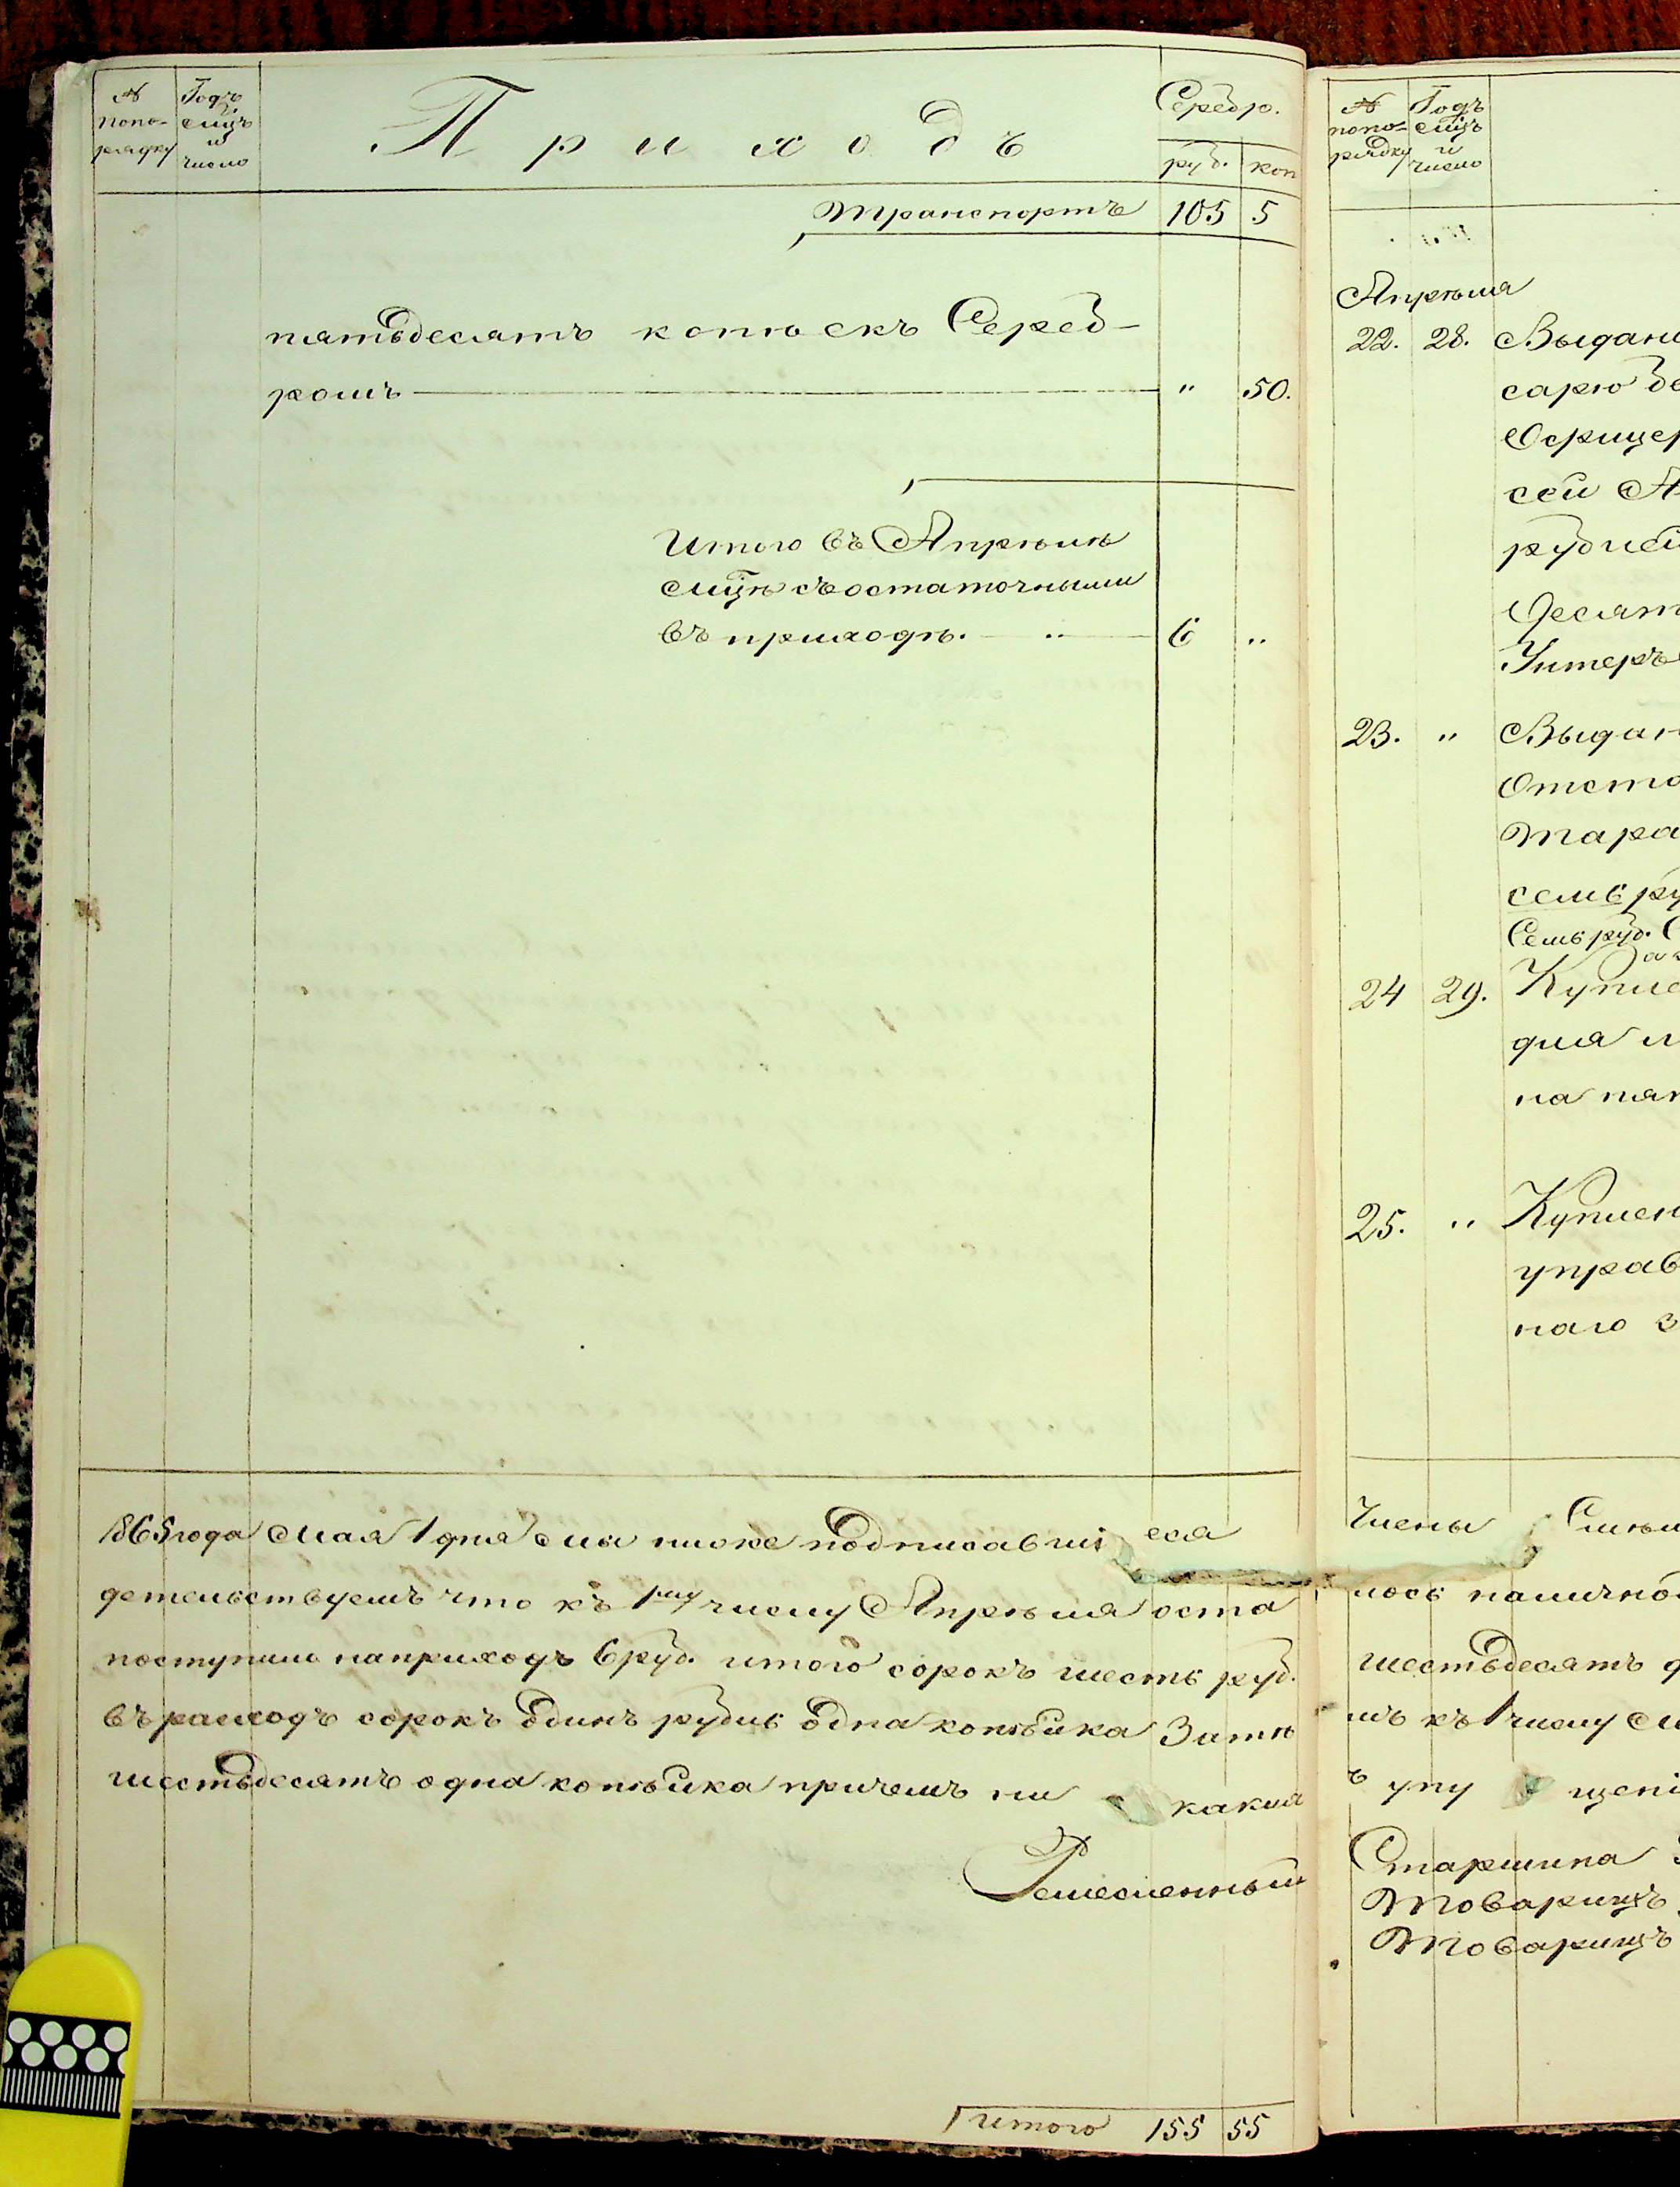 №
попо-
рядку
Годъ
мѣцъ
и
число
Приходъ
Серебр.
руб.
коп
Транспортъ 105 5
пятьдесятъ копѣекъ Сереб-
ромъ " 50.
Итого въ Апрѣлѣ
мцѣ съ остаточными
въ приходѣ. 6 "
1865 года Мая 1 дня мы ниже подписавшіеся
детельствуемъ что къ 1му числу Апрѣля оста
поступило на приходъ 6 руб. итого сорокъ шесть руб.
въ расходъ сорокъ одинъ рубль одна копѣйка Затѣ
шестьдесятъ одна копѣйка причемъ ни какия
Ремесленный
Итого 155 55
№
попо-
рядку
Годъ
мѣцъ
и
число
Апрѣля
22. 28. Выдано
сарю
Офицер
сей
рублей
Десят
Унтеръ
23. " Выдан
Отста
Тара
семь ру
Семь руб.
24 29. Купле
для
на пят
25. " Куплен
управ
наго з
Члены
лось налично
шестьдесятъ
мъ къ 1 числу
ъ упущені
Старшина
Товарищъ
Товарищъ